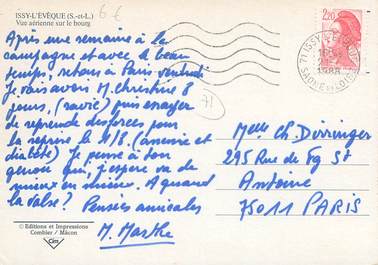 ISSY-L'ÉVÊQUE (S.-et-L.)
Vue aérienne sur le bourg
6 €
Après une semaine à la
campagne et avec le beau
temps, retour à Paris vendredi
Je vais avoir M. Christine 8
jours, (ravie) puis essayer
de reprendre des forces pour
la reprise le 1/8. (anémie et
diabète) Je pense à ton
genou qui, j'espère va de
mieux en mieux. A quand
la valse? Pensées amicales
M. Marthe
71
2,20
71 ISSY
1988
SAONE ET LOIRE
Melle Ch. Dirringer
295 Rue de Fg St
Antoine
75011 PARIS
© Editions et Impressions
Combier / Mâcon
Cim